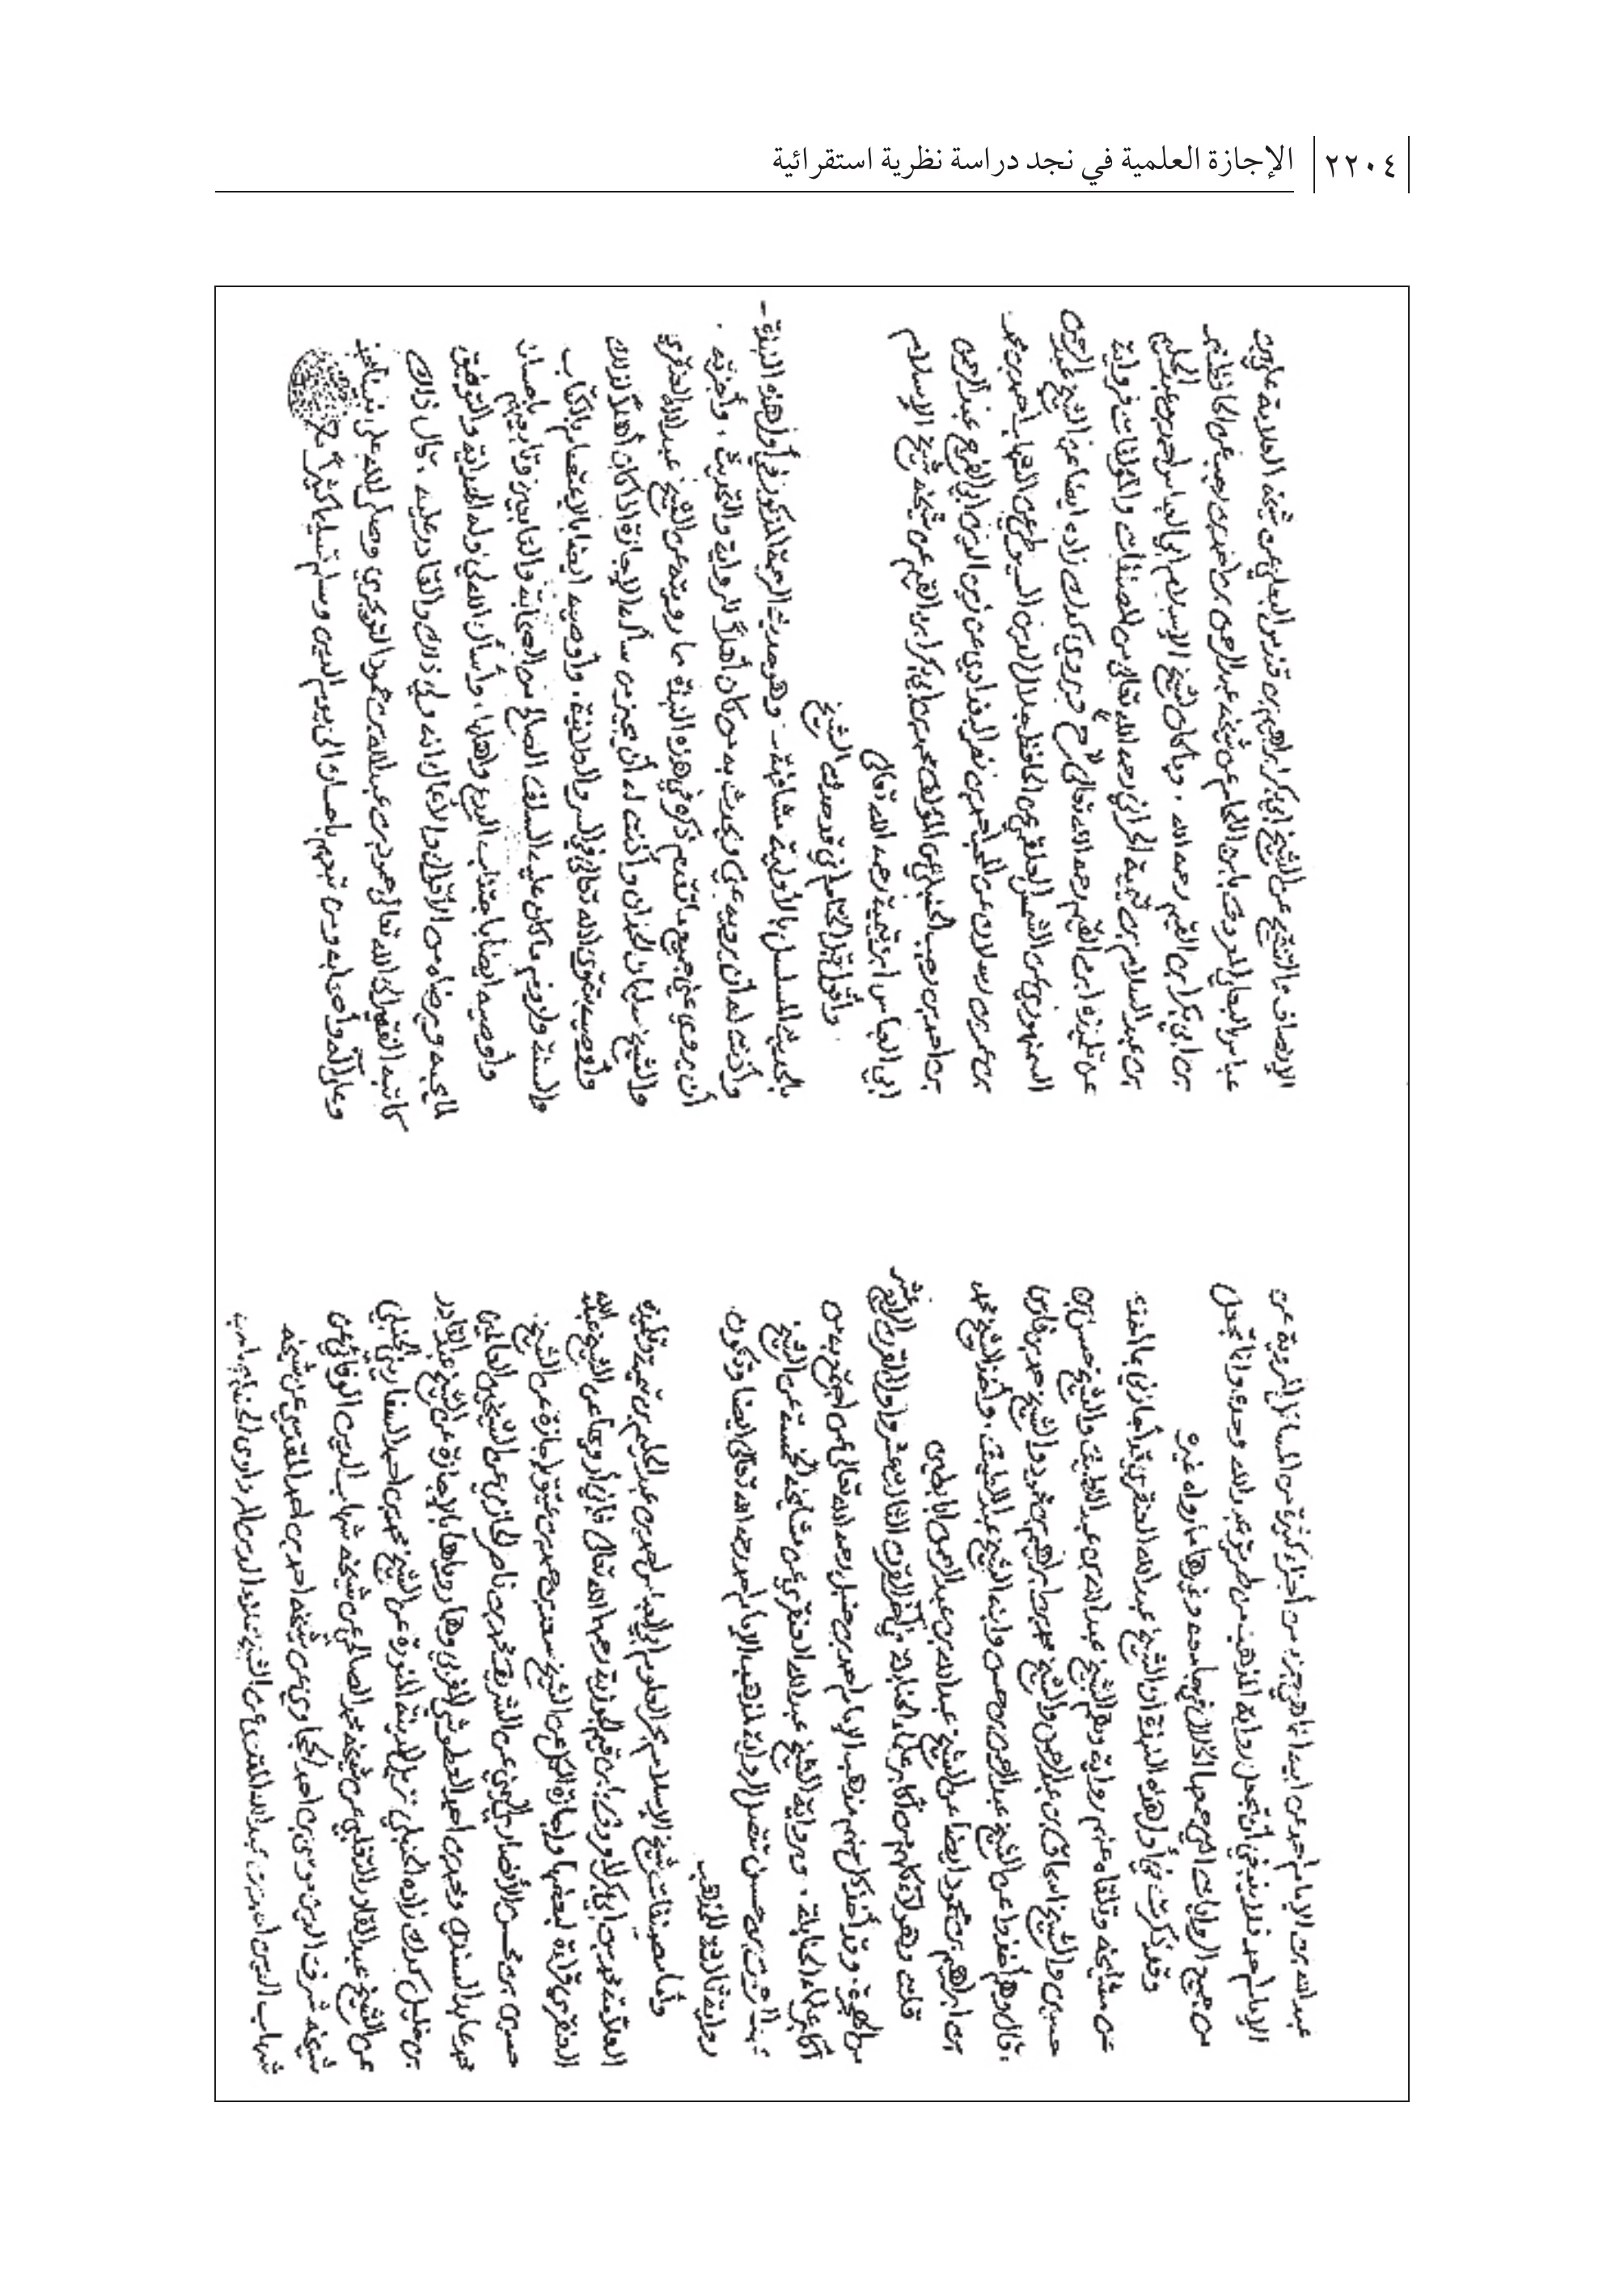 ٢٢٠٤ الإجازة العلمية في نجد دراسة نظرية استقرائية
عبد الله بن الإمام أحمد عن أبيه من أجزاء كثيرة من المسائل المروية عن
الإمام أحمد فلا ينبغي أن تجعل رواية المذهب من طريق عبد الله وحده وإنما تجعل
من جميع الروايات التي جمعها الخلال في جامعه وغيرها مما رواه غيره
وقد ذكرت في أول هذه النبذة أن الشيخ عبد الله العنقري قد أجازني بما أخذه
عن مشائخه وتلقاه عنهم رواية وهم الشيخ عبد الله بن عبد اللطيف والشيخ حسن بن
حسين والشيخ إسحاق بن عبد الرحمن والشيخ محمد بن إبراهيم بن محمود والشيخ حمد بن فارس
قال وهم أخذوا عن الشيخ عبد الرحمن بن حسن وابنه الشيخ عبد اللطيف. وأخذ الشيخ محمد
بن إبراهيم بن محمود أيضا عن الشيخ عبد الله بن عبد الرحمن أبا بطين
قلت وهؤلاء كلهم من أكابر علماء الحنابلة في آخر القرن الثالث عشر وأول القرن الرابع عشر
من الهجرة. وقد أخذ كل منهم مذهب الإمام أحمد بن حنبل رحمه الله تعالى عمن اجتمع به من
أكابر علماء الحنابلة. وبرواية الشيخ عبد الله العنقري عن مشايخه الخمسة عن الشيخ
عبد الرحمن بن حسن تتصل الرواية لمذهب الإمام أحمد رحمه الله تعالى أيضا وتكون
رواية ثالثة للمذهب
وأما مصنفات شيخ الإسلام بحر العلوم أبي العباس أحمد بن عبد الحليم بن تيمية وتلميذه
العلامة محمد بن أبي بكر المعروف بابن قيم الجوزية رحمهما الله تعالى فإني أرويها عن الشيخ عبد الله
العنقري قراءة لبعضها وإجازة لكل عن الشيخ سعد بن حمد بن عتيق إجازة عن الشيخ
حسين بن محسن الأنصاري اليمني عن الشريف محمد بن ناصر الحازمي عن الشيخين العالمين
محمد عابد السندي ومحمد بن أحمد العطوشي المغربي وهما روياها بالإجازة عن الشيخ عبد القادر
بن خليل كدك زاده الحنبلي نزيل المدينة المنورة عن الشيخ محمد بن أحمد السفاريني الحنبلي
عن الشيخ عبد القادر التغلبي عن شيخه محمد الصالحي عن شيخه شهاب الدين الوفائي عن
شيخه شرف الدين موسى بن أحمد الحجاوي عن شيخه أحمد بن أحمد المقدسي عن شيخه
شهاب الدين أحمد بن عبد الله
الإنصاف والتنقيح عن الشيخ أبي بكر إبراهيم بن قندس البعلي عن شيخه العلامة علي بن
عباس البعلي المعروف بابن اللحام عن شيخه عبد الرحمن بن أحمد بن رجب عن الحافظ محمد
بن أبي بكر ابن القيم رحمه الله. وما كان لشيخ الإسلام أبي العباس أحمد بن عبد الحليم
بن عبد السلام بن تيمية الحراني رحمه الله تعالى من المصنفات والمؤلفات فرواية
عن تلميذه ابن القيم رحمه الله تعالى ح ويروي كدك زاده أيضا عن الشيخ عبد الرحمن
السمنهوري عن الشمس العلقمي عن الحافظ جلال الدين السيوطي عن الشهاب أحمد بن محمد
بن عمر بن رسلان عن المحب أحمد بن نصر البغدادي عن زين الدين أبي الفرج عبد الرحمن
بن أحمد بن رجب الحنبلي عن المؤلف محمد بن أبي بكر ابن القيم عن شيخه شيخ الإسلام
أبي العباس ابن تيمية رحمه الله تعالى
وأقول قبل الختام إني قد حدثت الشيخ
بالحديث المسلسل بالأولية مشافهة - وهو حديث الرحمة المذكور في أول هذه النبذة -
وأذنت له أن يرويه عني ويحدث به من كان أهلاً للرواية والتحديث. وأجزته
أن يروي عني جميع ما تقدم ذكره في هذه النبذة مما رويته عن الشيخ عبد الله العنقري
والشيخ سليمان الحمدان وأذنت له أن يجيز من سأله الإجازة إذا كان أهلاً لذلك
وأوصيه بتقوى الله تعالى في السر والعلانية. وأوصيه أيضا بالاعتصام بالكتاب
والسنة ولزوم ما كان عليه السلف الصالح من الصحابة والتابعين وتابعيهم بإحسان
وأوصيه أيضا باجتناب البدع وأهلها. وأسأل الله لي وله الهداية والتوفيق
لما يحبه ويرضاه من الأقوال والأعمال إنه ولي ذلك والقادر عليه. قال ذلك
كاتبه الفقير إلى الله تعالى حمود بن عبد الله بن حمود التويجري وصلى الله على نبينا محمد
وعلى آله وأصحابه ومن تبعهم بإحسان إلى يوم الدين وسلم تسليما كثيرا